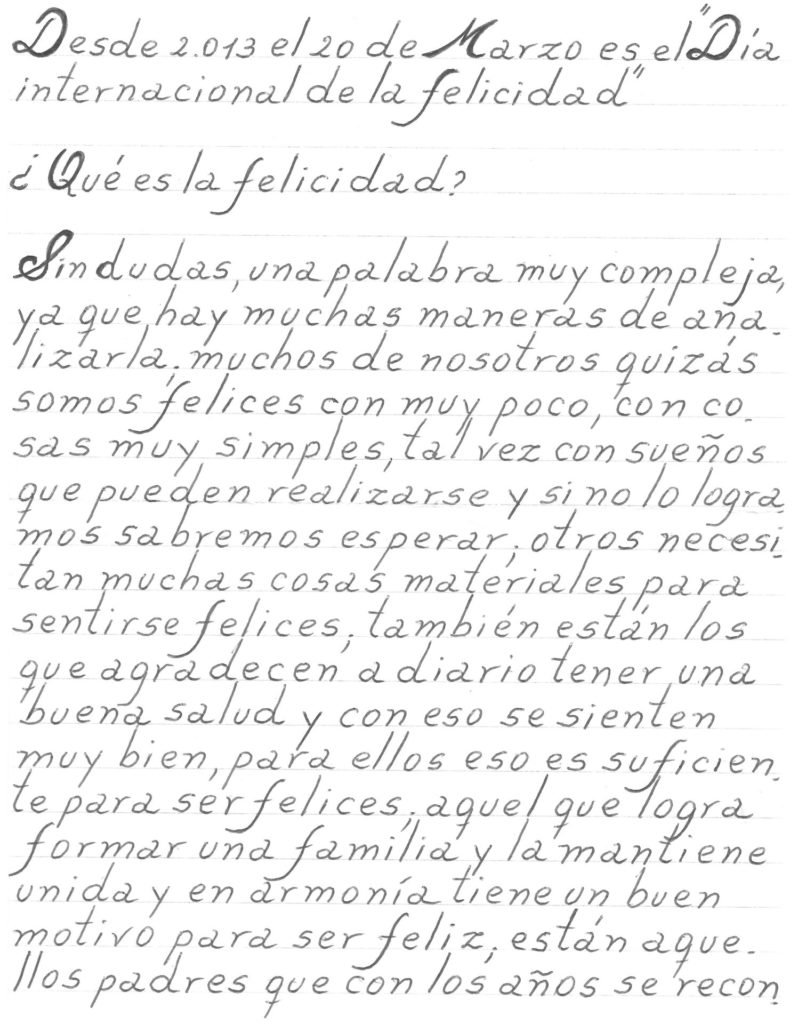 Desde 2.013 el 20 de Marzo es el "Día
internacional de la felicidad"
¿Qué es la felicidad?
Sin dudas, una palabra muy compleja,
ya que hay muchas maneras de ana-
lizarla; muchos de nosotros quizás
somos felices con muy poco, con co-
sas muy simples, tal vez con sueños
que pueden realizarse y si no lo logra-
mos sabremos esperar; otros necesi-
tan muchas cosas materiales para
sentirse felices; también están los
que agradecen a diario tener una
buena salud y con eso se sienten
muy bien, para ellos eso es suficien-
te para ser felices; aquel que logra
formar una familia y la mantiene
unida y en armonía tiene un buen
motivo para ser feliz; están aque-
llos padres que con los años se recon-